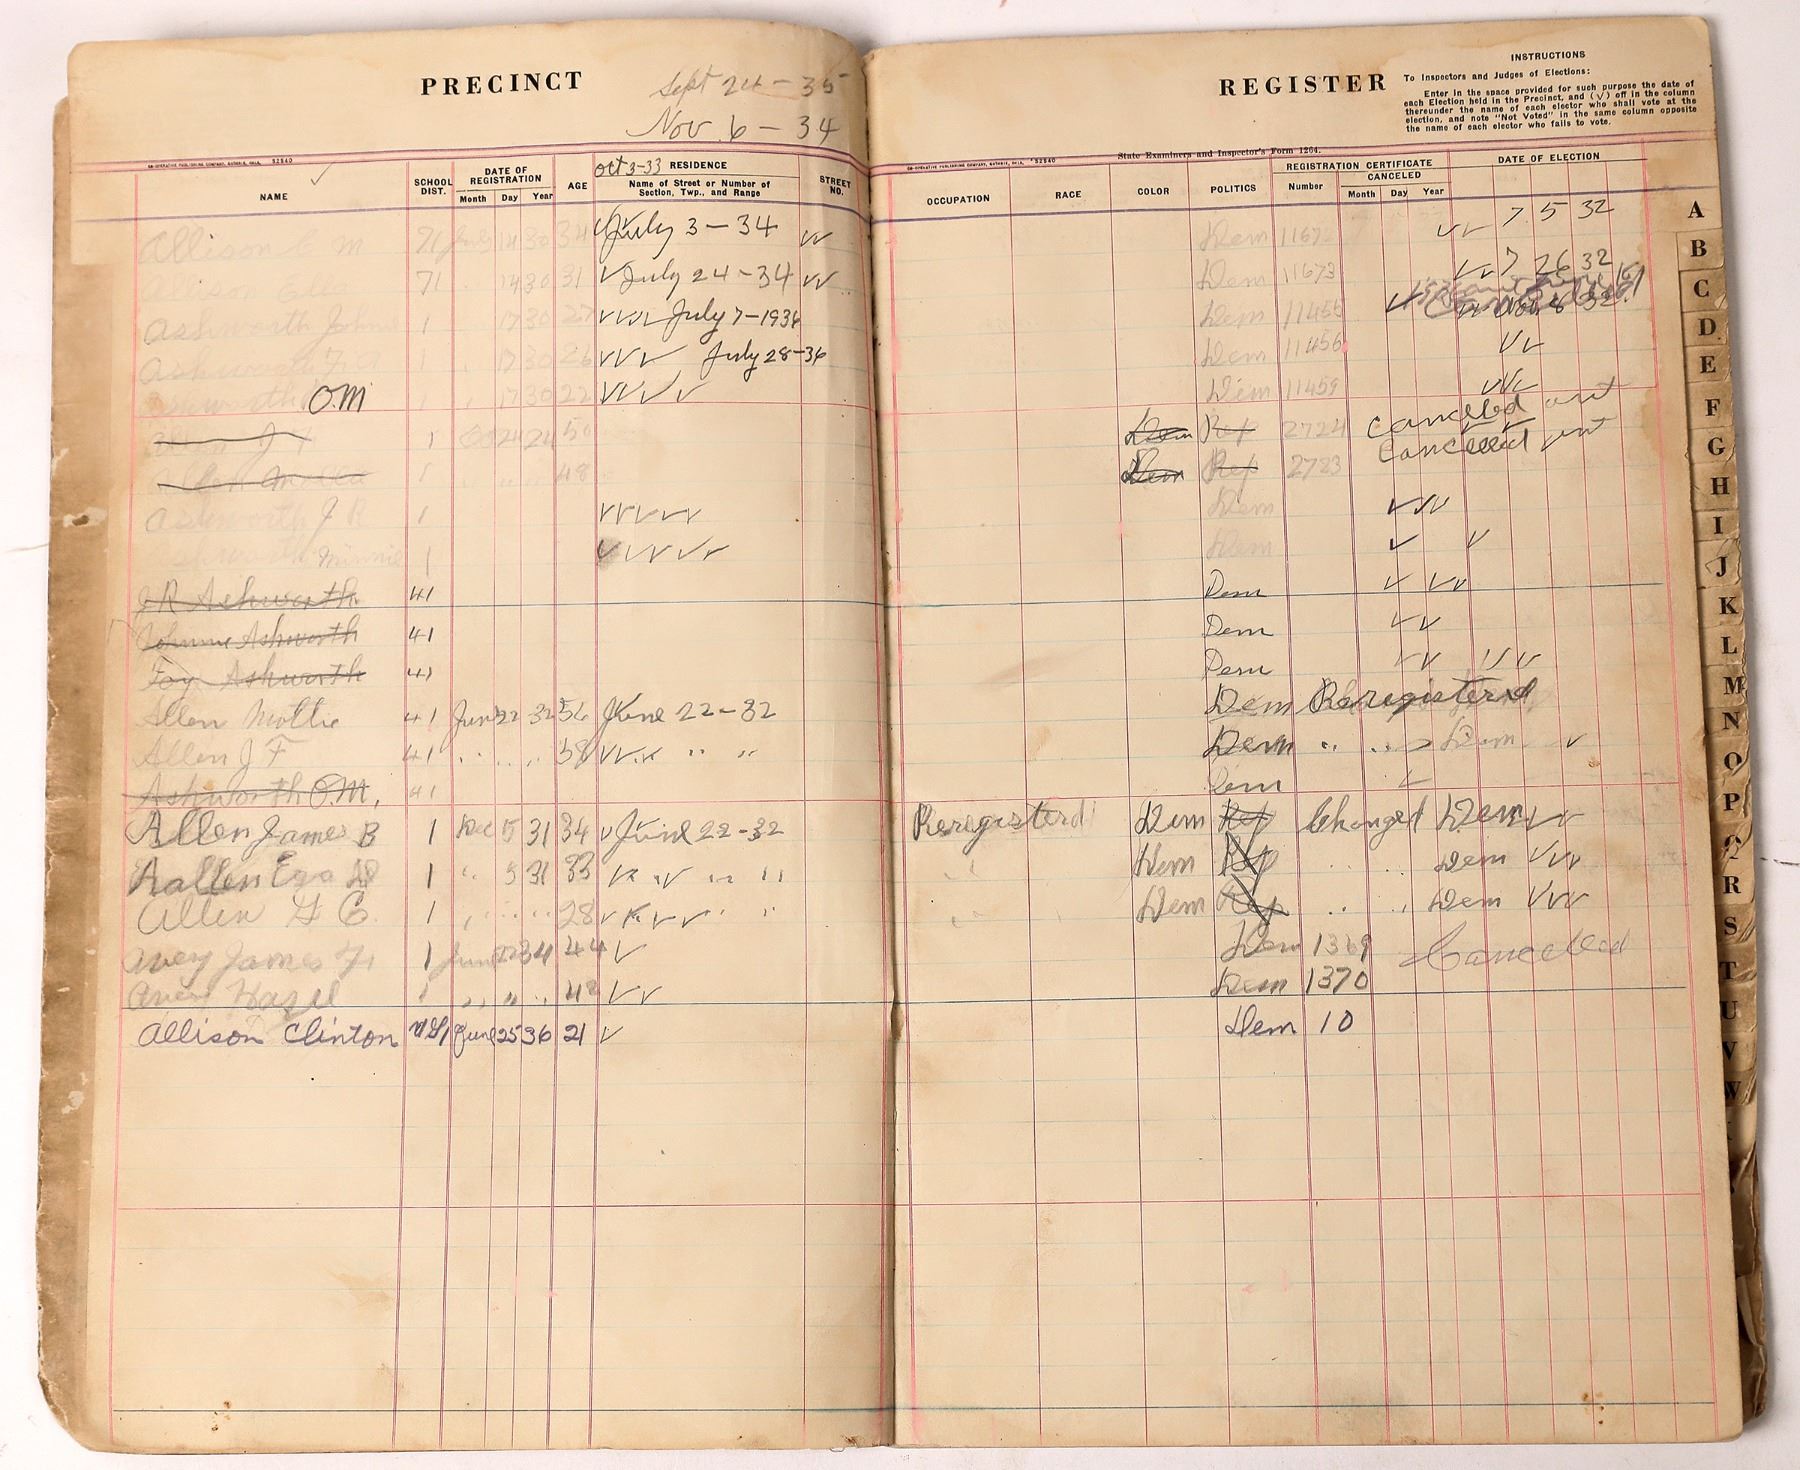 PRECINCT
Sept 24-35
Nov. 6-34
CO-OPERATIVE PUBLISHING COMPANY, GUTHRIE, OKLA. 52540
NAME
SCHOOL DIST.
DATE OF REGISTRATION
Month Day Year
AGE
Oct 3-33 RESIDENCE
Name of Street or Number of
Section, Twp., and Range
STREET NO.
Allison C M 71 July 14 30 34 ✓ July 3-34 ✓✓
Allison Ella 71 14 30 31 ✓ July 24-34 ✓✓
Ashworth John 1 17 30 27 ✓✓✓ July 7-1936
Ashworth 1 17 30 26 ✓✓✓ July 28-36
Ashworth O.M 1 17 30 22 ✓✓✓✓
Allen J F 1 24 24 50
Allen Mollie 48
Ashworth J R 1 ✓✓✓✓✓
Ashworth Minnie 1 ✓✓✓✓✓
J R Ashworth 41
Johnnie Ashworth 41
Foy Ashworth 41
Allen Mollie 41 June 22 32 56 June 22-32
Allen J F 41 58 ✓✓✓ " "
Ashworth O.M. 41
Allen James B 1 Dec 5 31 34 ✓ June 22-32
Allen D 1 " 5 31 33 ✓✓✓ " "
Allen G C. 1 28 ✓✓✓✓ " "
Avery James 1 June 22 34 44 ✓
Avery Hazel " " 42 ✓✓
Allison Clinton June 25 36 21 ✓
REGISTER
INSTRUCTIONS
To Inspectors and Judges of Elections:
Enter in the space provided for such purpose the date of
each Election held in the Precinct, and (✓) off in the column
thereunder the name of each elector who shall vote at the
election, and note "Not Voted" in the same column opposite
the name of each elector who fails to vote.
CO-OPERATIVE PUBLISHING COMPANY, GUTHRIE, OKLA. 52540
State Examiners and Inspector's Form 1264.
OCCUPATION
RACE
COLOR
POLITICS
REGISTRATION CERTIFICATE
Number
CANCELED
Month Day Year
DATE OF ELECTION
Dem 1167 ✓✓ 7 5 32
Dem 11673 ✓✓ 7 26 32
Dem 11455 ✓ Nov 8 32
Dem 11456 ✓✓
Dem 11459 ✓✓✓
Dem Rep 2724 Cancelled
Dem Rep 2723 Cancelled
Dem ✓✓✓
Dem ✓ ✓
Dem ✓ ✓✓
Dem ✓✓
Dem ✓✓ ✓✓✓
Dem Reregisterd
Dem " " Dem ✓
Dem ✓
Reregisterd Dem Rep Changed Dem ✓✓
Dem Rep Dem ✓✓✓
Dem Rep Dem ✓✓✓
Dem 1369 Cancelled
Dem 1370
Dem 10
A
B
C
D
E
F
G
H
I
J
K
L
M
N
O
P
Q
R
S
T
U
V
W